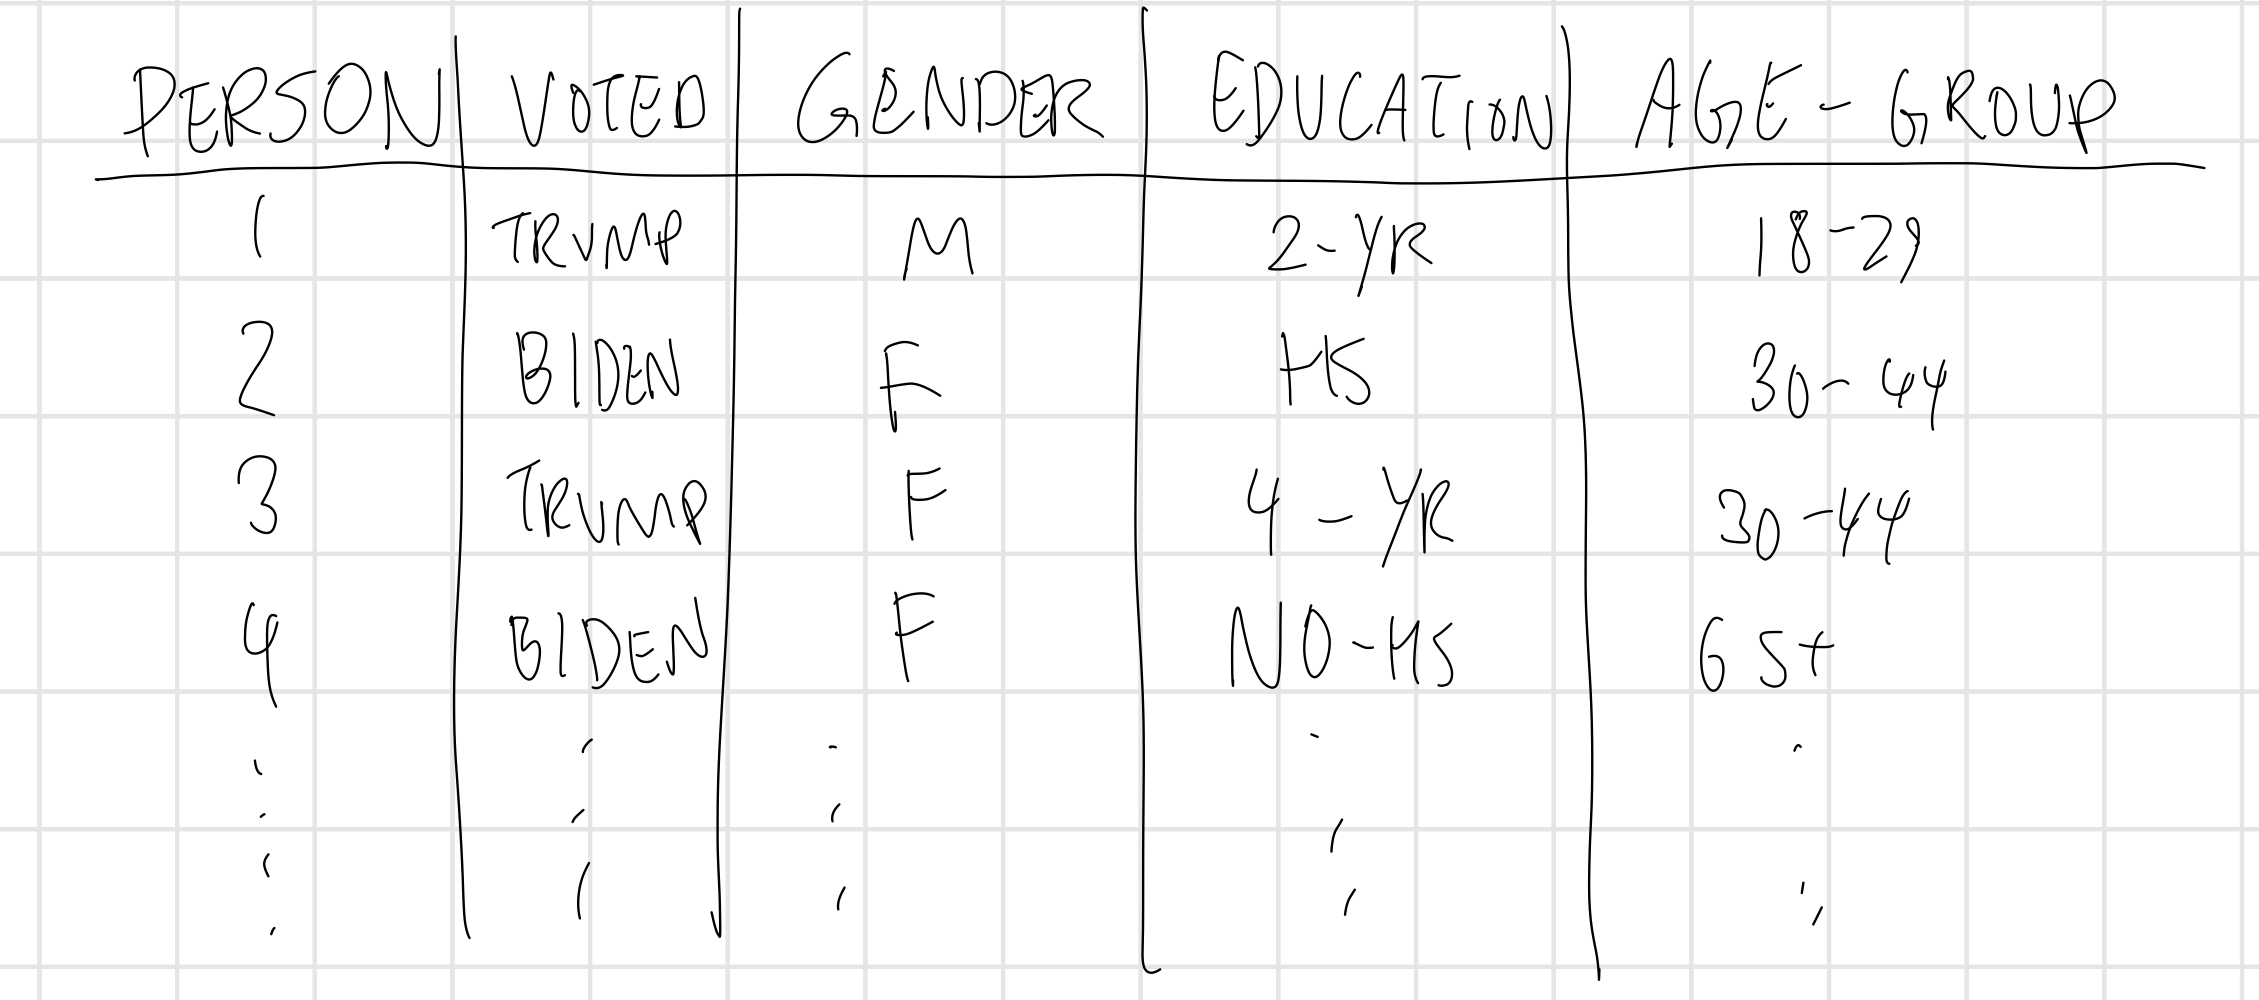 PERSON VOTED GENDER EDUCATION AGE-GROUP
1 TRUMP M 2-YR 18-29
2 BIDEN F HS 30-44
3 TRUMP F 4-YR 30-44
4 BIDEN F NO-HS 65+